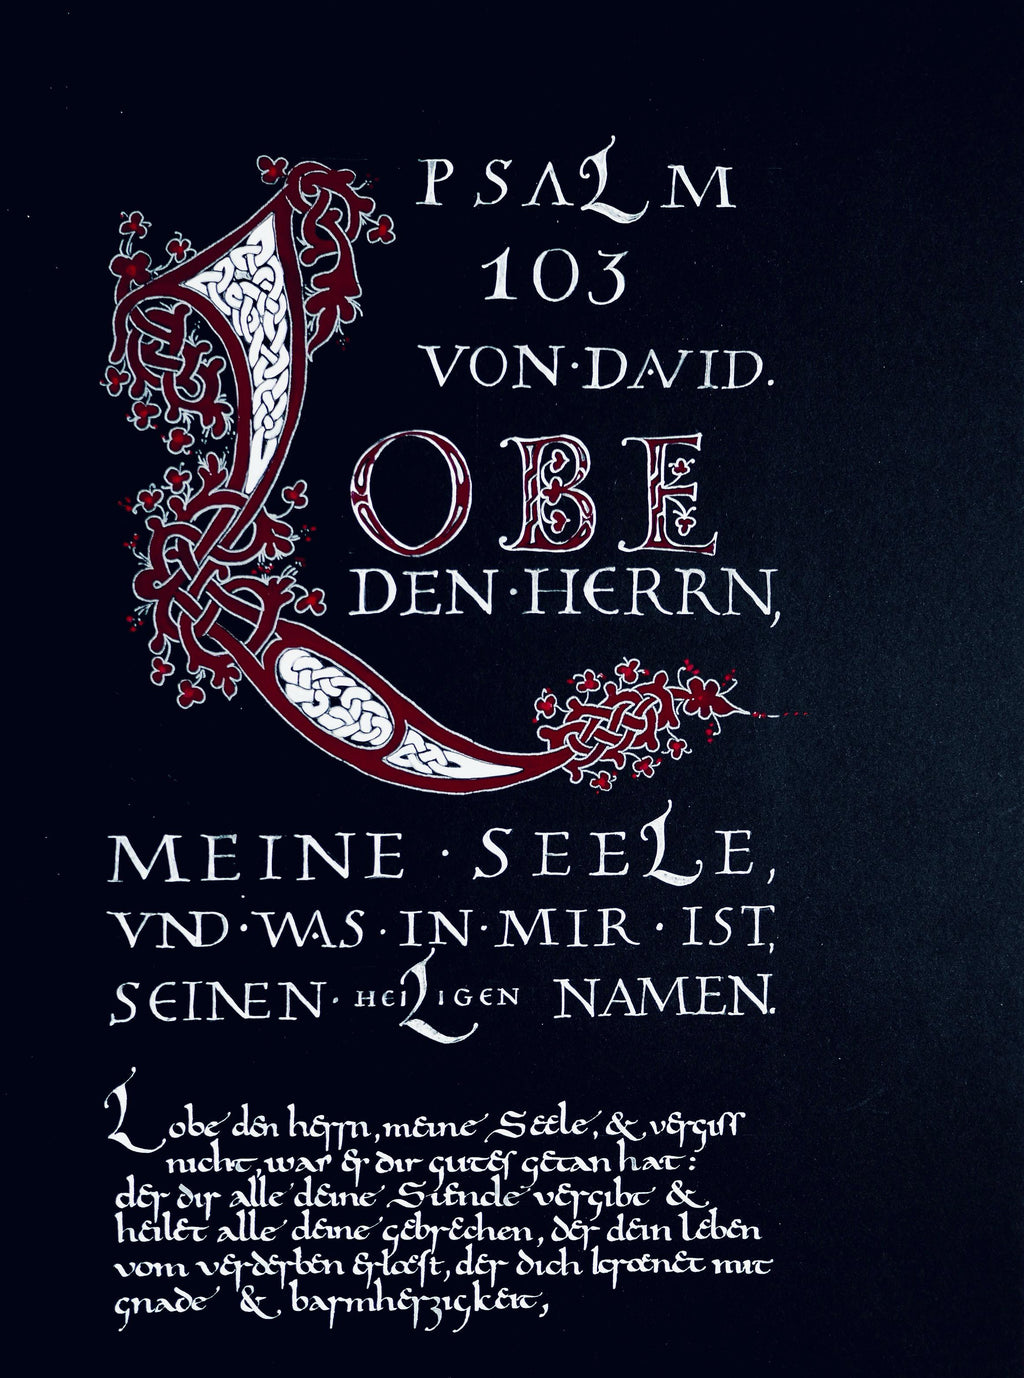 PSALM
103
VON·DAVID.
LOBE
DEN·HERRN,
MEINE · SEELE,
VND·WAS·IN·MIR·IST,
SEINEN·HEILIGEN NAMEN.
Lobe den herrn, meine Seele, & vergiss
nicht, was er dir gutes getan hat:
der dir alle deine Suende vergibt &
heilet alle deine gebrechen, der dein leben
vom verderben erloest, der dich kroenet mit
gnade & barmherzigkeit,